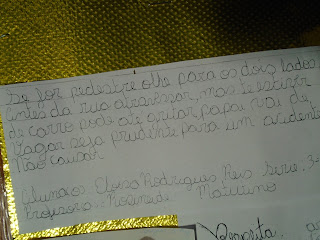 Se for pedestre olhe para os dois lados
antes da rua atravessar, mas se estiver
de carro pode até gritar, papai vai de
vagar seja prudente para um acidente
não causar
Aluna: Eloisa Rodrigues Reis Serie: 3
Professora: Matutino